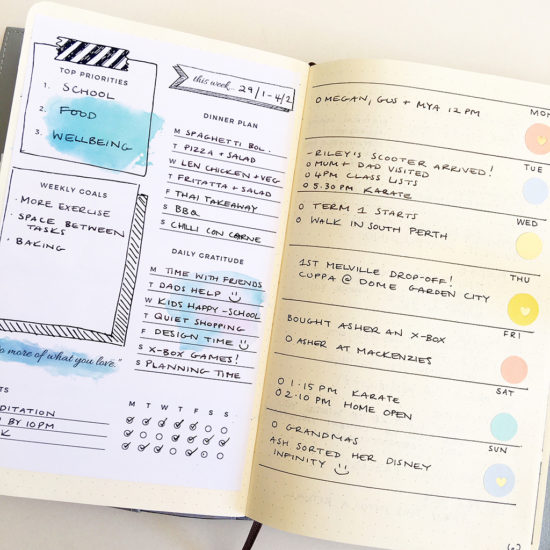 TOP PRIORITIES
1. SCHOOL
2. FOOD
3. WELLBEING
WEEKLY GOALS
· MORE EXERCISE
· SPACE BETWEEN
TASKS
· BAKING
o more of what you love."
TS
DITATION
BY 10PM
K
this week... 29/1-4/2
DINNER PLAN
M SPAGHETTI BOL.
T PIZZA + SALAD
W LEN CHICKEN + VEG
T FRITATTA + SALAD
F THAI TAKEAWAY
S BBQ
S CHILLI CON CARNE
DAILY GRATITUDE
M TIME WITH FRIENDS
T DADS HELP
W KIDS HAPPY - SCHOOL
T QUIET SHOPPING
F DESIGN TIME
S X-BOX GAMES!
S PLANNING TIME
M T W T F S S
MON
O MEGAN, GUS + MYA 12PM
TUE
- RILEY'S SCOOTER ARRIVED!
O MUM + DAD VISITED
O 4PM CLASS LISTS
O 5.30PM KARATE
WED
O TERM 1 STARTS
O WALK IN SOUTH PERTH
THU
1ST MELVILLE DROP-OFF!
CUPPA @ DOME GARDEN CITY
FRI
BOUGHT ASHER AN X-BOX
O ASHER AT MACKENZIES
SAT
O 1.15PM KARATE
O 2.10PM HOME OPEN
SUN
O GRANDMAS
ASH SORTED HER DISNEY
INFINITY